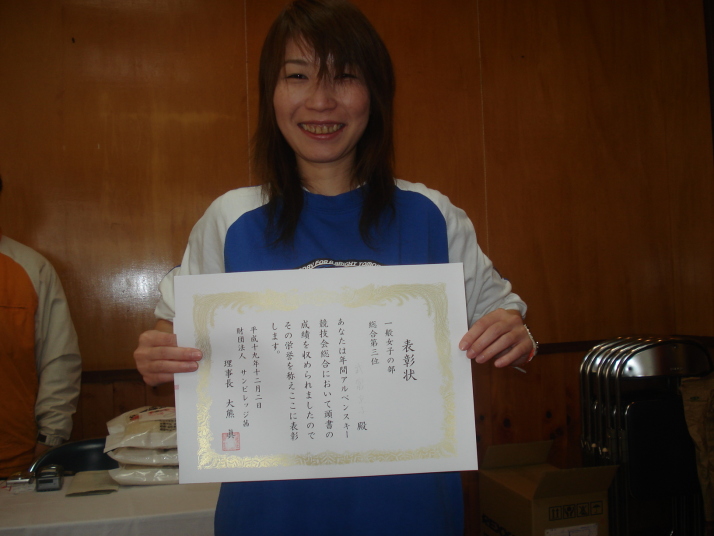 表彰状
一般女子の部
総合第三位
殿
あなたは年間アルペンスキー
競技会総合において頭書の
成績を収められましたので
その栄誉を称えここに表彰
します。
平成十九年十二月二日
財団法人 サンビレッジ茜
理事長 大熊